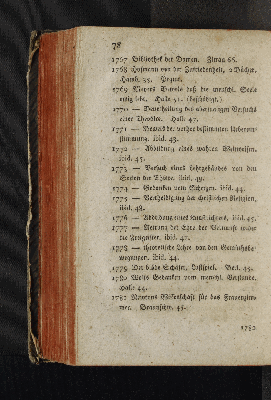 78
1767 Bibliothek der Damen. Zittau 66.
1768 Hofmann von der Zufriedenheit, 2 Bücher.
Hamb. 35. Pergm.
1769 Meyers Beweis daß die menschl. Seele
ewig lebe. Halle 51. (beschädigt.)
1770 — Beurtheilung des abermaligen Versuchs
einer Theodicee. Halle 47.
1771 — Beweis der vorher bestimmten Ueberein-
stimmung. ibid. 43.
1772 — Abbildung eines wahren Weltweisen.
ibid. 45.
1773 — Versuch eines Lehrgebäudes von den
Seelen der Thiere. ibid. 49.
1774 — Gedanken vom Scherzen. ibid. 44.
1775 — Vertheidigung der christlichen Religion,
ibid. 48.
1776 — Abbildung eines Kunstrichters, ibid. 45.
1777 — Rettung der Ehre der Vernunft wider
die Freygeister. ibid. 47.
1778 — theoretische Lehre von den Gemüthsbe-
wegungen. ibid. 44.
1779 Der blöde Schäfer, Lustspiel. Berl. 45.
1780 Wolfs Gedanken vom menschl. Verstande.
Halle 44.
1781 Meyerens Wissenschaft für das Frauenzim-
mer. Braunschw. 45.
1782